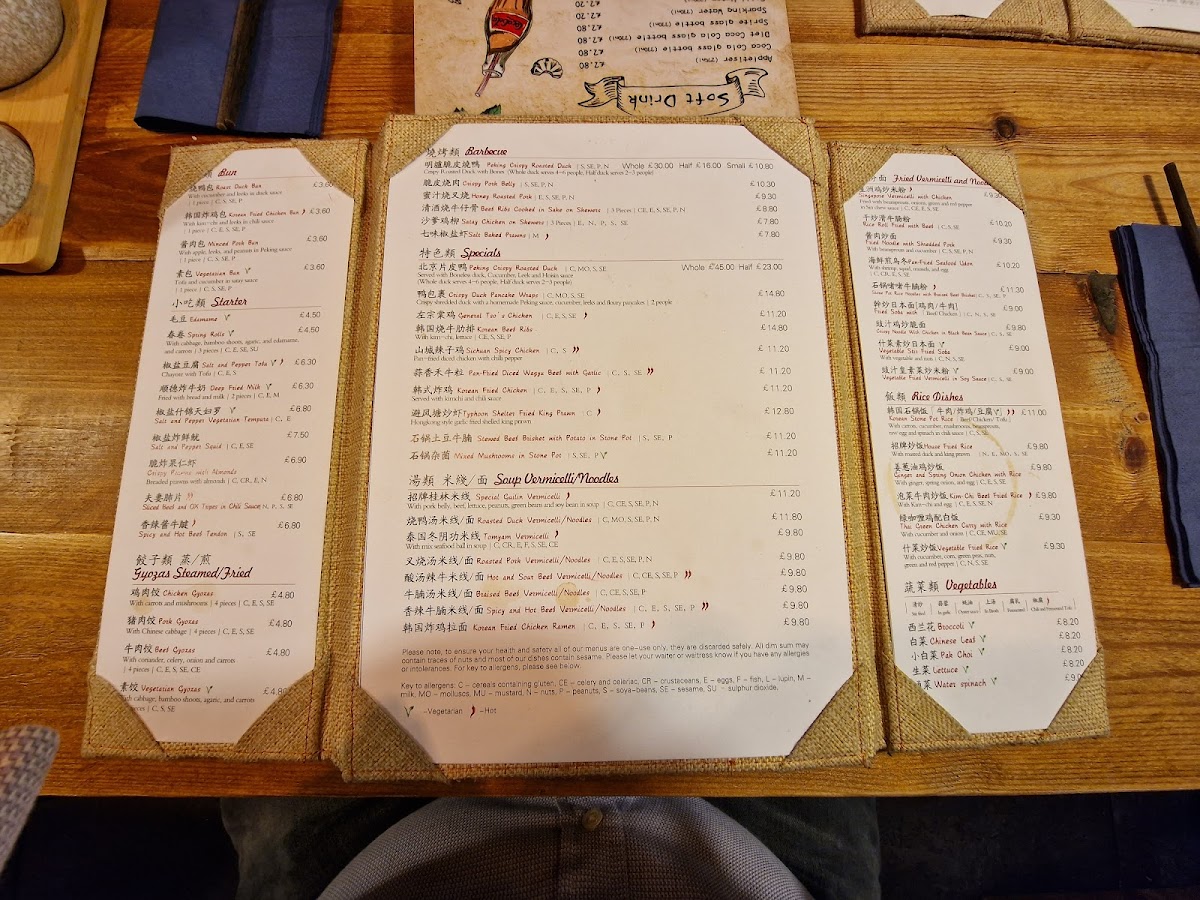 Soft Drink
Appletiser (275ml) £2.80
Coca Cola glass bottle (330ml) £2.80
Diet Coca Cola glass bottle (330ml) £2.80
Sprite glass bottle (330ml) £2.80
Sparking Water (330ml) £2.20
£2.20
類 Bun
烧鸭包 Roast Duck Bun £3.60
With cucumber and leeks in duck sauce
| 1 piece | C, S, SE, P
韩国炸鸡包 Korean Fried Chicken Bun £3.60
With kim-chi and leeks in chili sauce
| 1 piece | C, S, SE
酱肉包 Minced Pork Bun £3.60
With apple, leeks, and peanuts in Peking sauce
| 1 piece | C, S, SE, P
素包 Vegetarian Bun £3.60
Tofu and cucumber in satay sauce
| 1 piece | C, S, SE, P
小吃類 Starter
毛豆 Edamame £4.50
春卷 Spring Rolls £4.50
With cabbage, bamboo shoots, agaric, and edamame,
and carrots | 3 pieces | C, E, SE, SU
椒盐豆腐 Salt and Pepper Tofu £6.30
Chayote with Tofu | C, E, S
顺德炸牛奶 Deep Fried Milk £6.30
Fried with bread and milk | 2 pieces | C, E, M
椒盐什锦天妇罗 £6.80
Salt and Pepper Vegetarian Tempura | C, E
椒盐炸鲜鱿 £7.50
Salt and Pepper Squid | C, E, SE
脆炸果仁虾 £6.90
Crispy Prawns with Almonds
Breaded prawns with almonds | C, CR, E, N
夫妻肺片 £6.80
Sliced Beef and OX Tripes in Chili Sauce | N, P, S, SE
香辣酱牛腱 £6.80
Spicy and Hot Beef Tendon | S, SE
餃子類 蒸/煎
Gyozas Steamed/Fried
鸡肉饺 Chicken Gyozas £4.80
With carrots and mushrooms | 4 pieces | C, E, S, SE
猪肉饺 Pork Gyozas £4.80
With Chinese cabbage | 4 pieces | C, E, S, SE
牛肉饺 Beef Gyozas £4.80
With coriander, celery, onion and carrots
| 4 pieces | C, E, S, SE, CE
素饺 Vegetarian Gyozas £4.80
cabbage, bamboo shoots, agaric, and carrots
pieces | C, S, SE
燒烤類 Barbecue
明爐脆皮烧鸭 Peking Crispy Roasted Duck | S, SE, P, N Whole £30.00 Half £16.00 Small £10.80
Crispy Roasted Duck with Bones (Whole duck serves 4-6 people, Half duck serves 2-3 people)
脆皮烧肉 Crispy Pork Belly | S, SE, P, N £10.30
蜜汁烧叉烧 Honey Roasted Pork | E, S, SE, P, N £9.30
清酒烧牛仔骨 Beef Ribs Cooked in Sake on Skewers | 3 Pieces | CE, E, S, SE, P, N £8.80
沙爹鸡柳 Satay Chicken on Skewers | 3 Pieces | E, N, P, S, SE £7.80
七味椒盐虾 Salt Baked Prawns | M £7.80
特色類 Specials
北京片皮鸭 Peking Crispy Roasted Duck | C, MO, S, SE Whole £45.00 Half £23.00
Served with Boneless duck, Cucumber, Leek and Hoisin sauce
(Whole duck serves 4-6 people, Half duck serves 2-3 people)
鸭包裹 Crispy Duck Pancake Wraps | C, MO, S, SE £14.80
Crispy shredded duck with a homemade Peking sauce, cucumber, leeks and floury pancakes | 2 people
左宗棠鸡 General Tso's Chicken | C, E, S, SE £11.20
韩国烧牛肋排 Korean Beef Ribs £14.80
With kim-chi, lettuce | CE, S, SE, P
山城辣子鸡 Sichuan Spicy Chicken | C, S £11.20
Pan-fried diced chicken with chilli pepper
蒜香禾牛粒 Pan-Fried Diced Wagyu Beef with Garlic | C, S, SE £11.20
韩式炸鸡 Korean Fried Chicken | C, E, S, SE, P £11.20
Served with kimchi and chili sauce
避风塘炒虾 Typhoon Shelter Fried King Prawn | C £12.80
Hongkong style garlic fried shelled king prawn
石锅土豆牛腩 Stewed Beef Brisket with Potato in Stone Pot | S, SE, P £11.20
石锅杂菌 Mixed Mushrooms in Stone Pot | S, SE, P £11.20
湯類 米线/面 Soup Vermicelli/Noodles
招牌桂林米线 Special Guilin Vermicelli £11.20
With pork belly, beef, lettuce, peanuts, green beans and soy bean in soup | C, CE, S, SE, P, N
烧鸭汤米线/面 Roasted Duck Vermicelli/Noodles | C, MO, S, SE, P, N £11.80
泰国冬阴功米线 Tomyam Vermicelli £9.80
With mix seafood ball in soup | C, CR, E, F, S, SE, CE
叉烧汤米线/面 Roasted Pork Vermicelli/Noodles | C, E, S, SE, P, N £9.80
酸汤辣牛米线/面 Hot and Sour Beef Vermicelli/Noodles | C, CE, S, SE, P £9.80
牛腩汤米线/面 Braised Beef Vermicelli/Noodles | C, CE, S, SE, P £9.80
香辣牛腩米线/面 Spicy and Hot Beef Vermicelli/Noodles | C, E, S, SE, P £9.80
韩国炸鸡拉面 Korean Fried Chicken Ramen | C, E, S, SE, P £9.80
Please note, to ensure your health and safety all of our menus are one-use only, they are discarded safely. All dim sum may
contain traces of nuts and most of our dishes contain sesame. Please let your waiter or waitress know if you have any allergies
or intolerances. For key to allergens, please see below.
Key to allergens: C - cereals containing gluten, CE - celery and celeriac, CR - crustaceans, E - eggs, F - fish, L - lupin, M -
milk, MO - molluscs, MU - mustard, N - nuts, P - peanuts, S - soya-beans, SE - sesame, SU - sulphur dioxide,
-Vegetarian -Hot
面 Fried Vermicelli and Noodles
洲鸡炒米粉 £9.30
Singapore Vermicelli with Chicken
Fried with beansprouts, onions, green and red pepper
in Soy chew sauce | C, CE, E, SE
干炒清牛肠粉 £10.20
Rice Roll Fried with Beef | C, S, SE
酱肉炒面 £9.30
Fried Noodle with Shredded Pork
With beansprout and cucumber | C, N, S, SE, P, N
海鲜煎乌冬 Pan-Fried Seafood Udon £10.20
With shrimp, squid, mussels, and egg
| C, CR, E, SE
石锅啫啫牛腩粉 £11.20
Stone Pot Rice Noodles with Braised Beef Brisket | C, S, SE, P
幹炒日本面[鸡肉/牛肉] £9.00
Fried Soba with [Beef/Chicken] | C, N, S, SE
豉汁鸡炒脆面 £9.80
Crispy Noodle With Chicken in Black Bean Sauce | C, S, SE
什菜素炒日本面 £9.00
Vegetable Stir Fried Soba
With vegetable and nuts | C, N, S, SE
豉汁皇素菜炒米粉 £9.00
Vegetable Fried Vermicelli in Soy Sauce | C, S, SE
飯類 Rice Dishes
韩国石锅饭「牛肉/炸鸡/豆腐」 £11.00
Korean Stone Pot Rice「Beef/Chicken/Tofu」
With carrots, cucumber, mushrooms, beansprouts,
raw egg and spinach in chili sauce | C, S, SE
招牌炒饭 House Fried Rice £9.80
With roasted duck and king prawn | N, E, MO, S, SE
姜葱油鸡炒饭 £9.80
Ginger and Spring Onion Chicken with Rice
With ginger, spring onion, and egg | C, E, S, SE
泡菜牛肉炒饭 Kim-Chi Beef Fried Rice £9.80
With Kim-chi and egg | C, E, S, SE, N
绿咖喱鸡配白饭 £9.30
Thai Green Chicken Curry with Rice
With cucumber and onion | C, CE, MU, SE
什菜炒饭 Vegetable Fried Rice £9.30
With cucumber, corn, green peas, nuts,
green and red pepper | C, N, S, SE
蔬菜類 Vegetables
清炒 蒜蓉 蚝油 上汤 腐乳 椒腐
Stir fried In garlic Oyster sauce In Broth Fermented Chili and Fermented Tofu
西兰花 Broccoli £8.20
白菜 Chinese Leaf £8.20
小白菜 Pak Choi £8.20
生菜 Lettuce £8.20
菜 Water spinach £9.